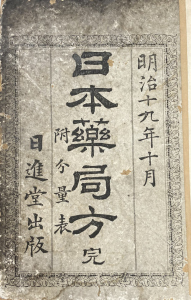 明治十九年十月
日本藥局方 完
附分量表
日進堂出版